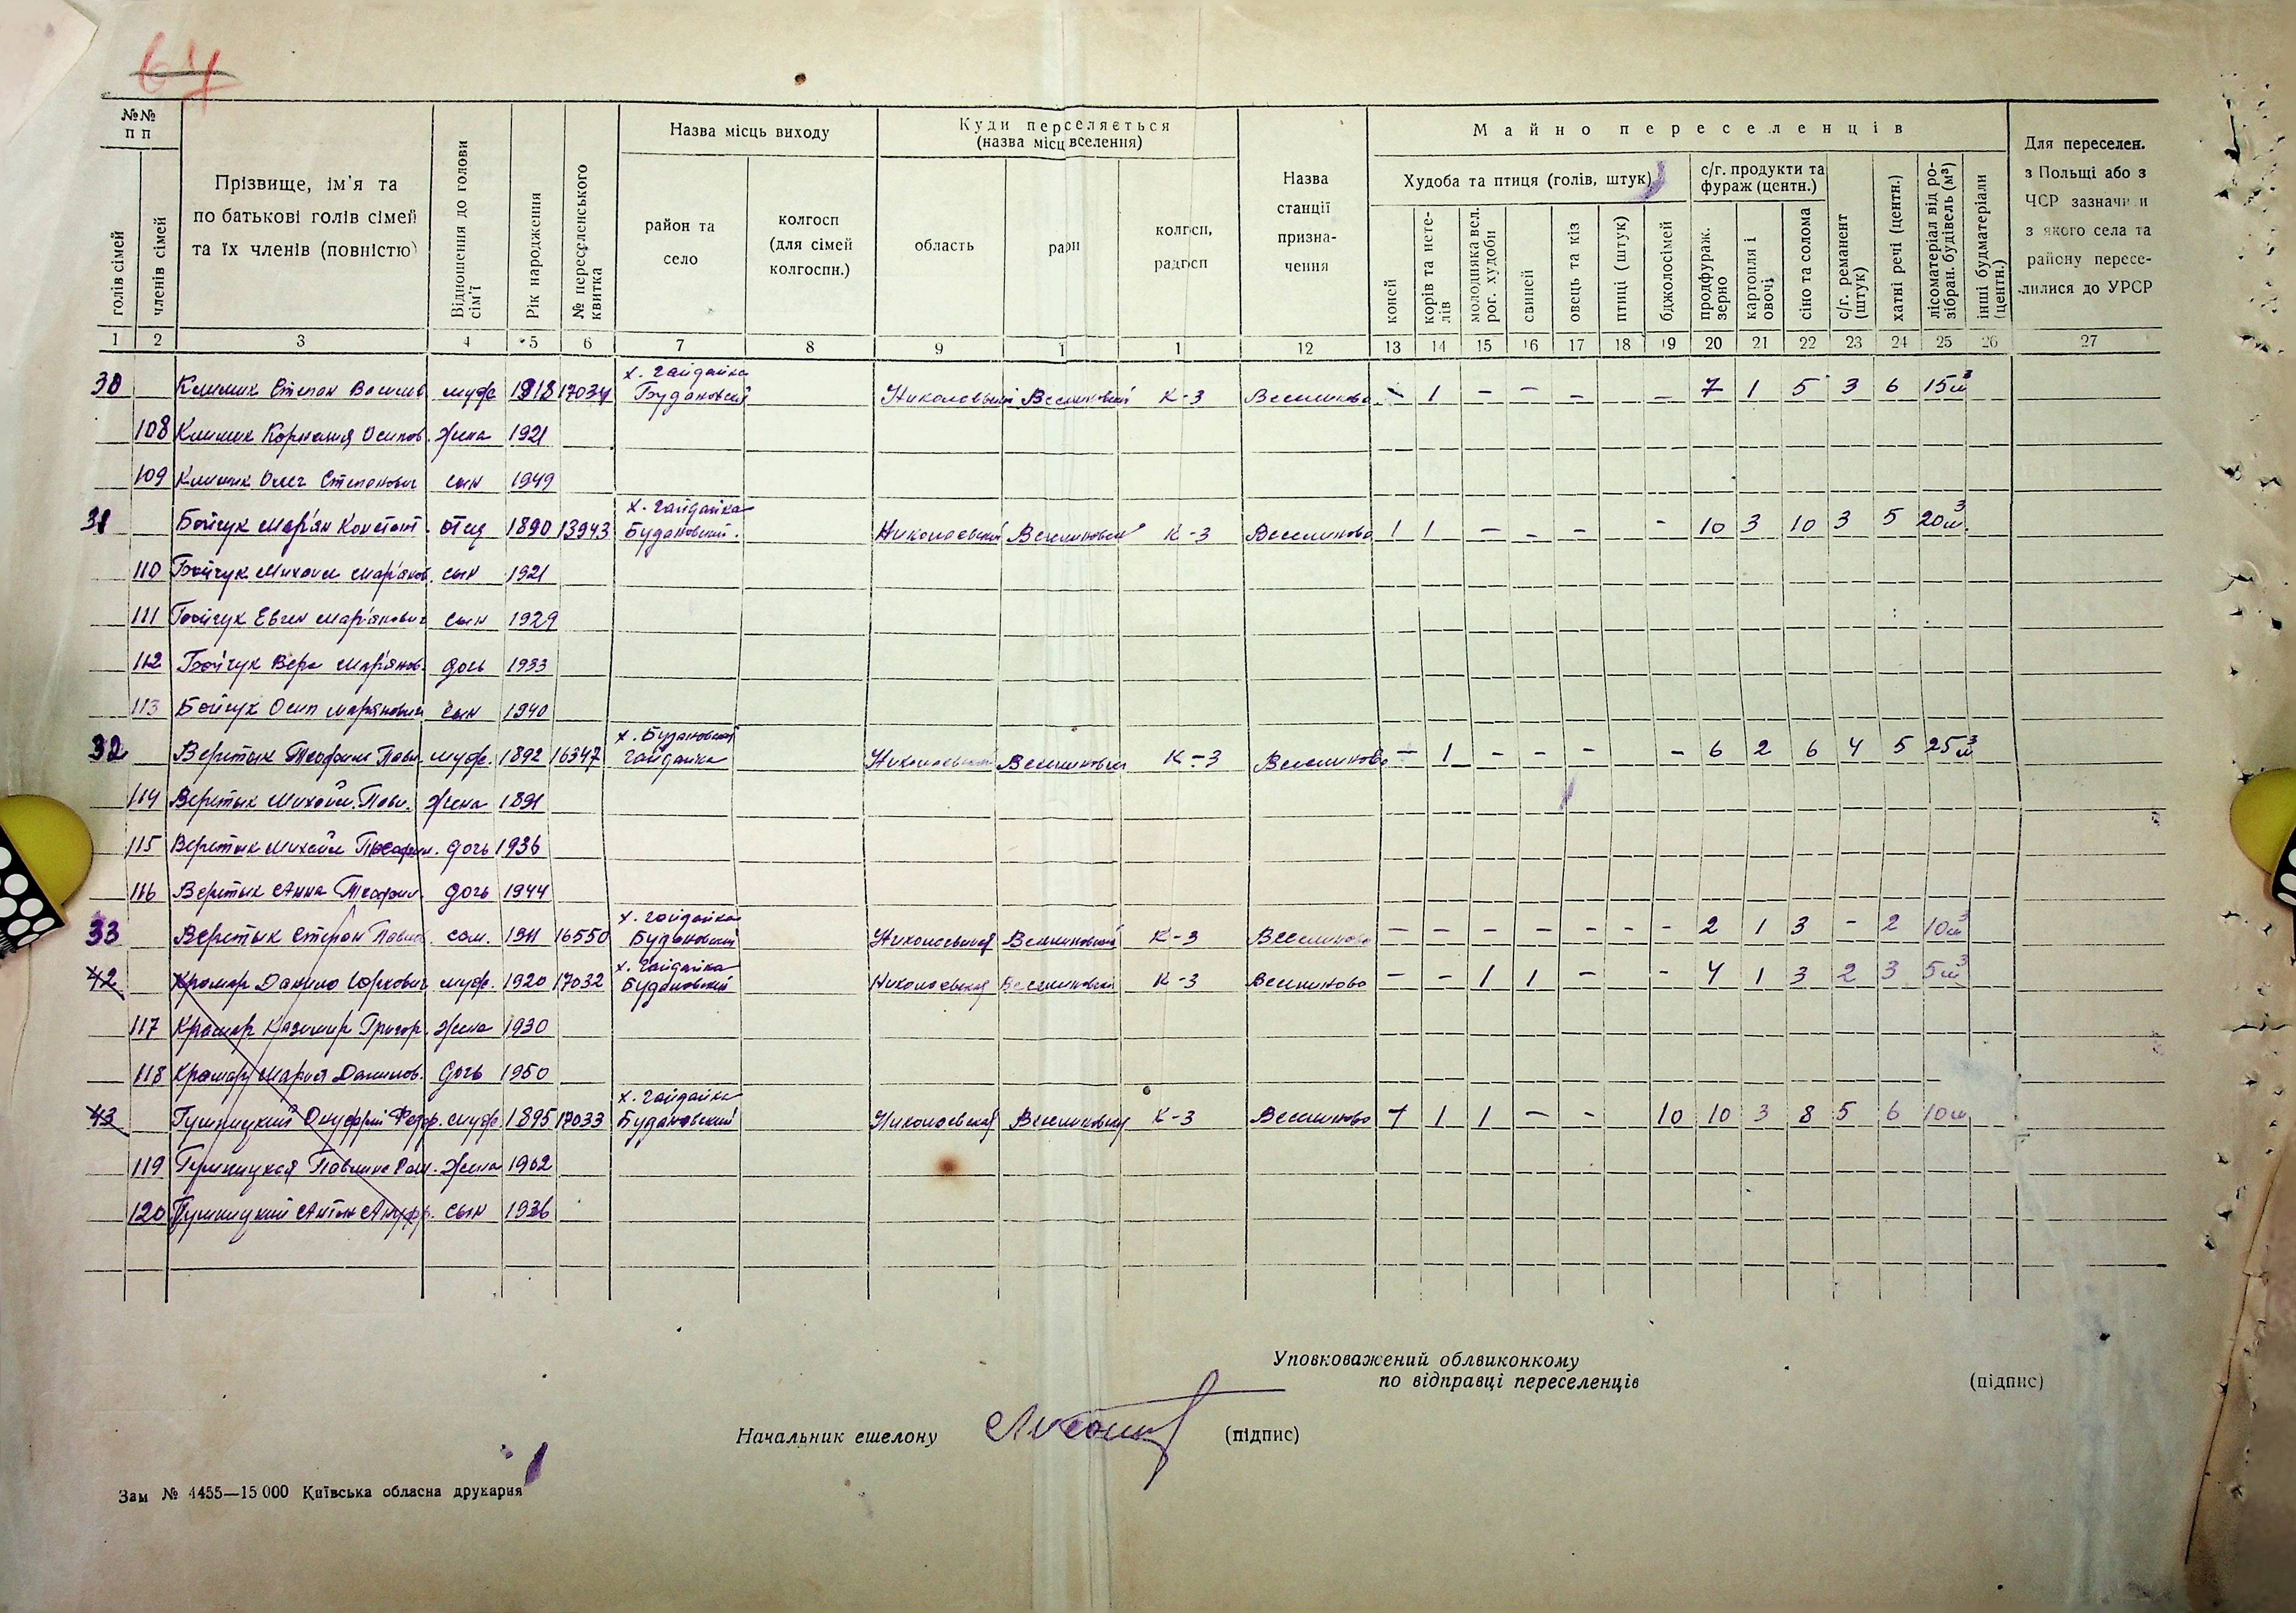 64
№№ п п
Прізвище, ім'я та по батькові голів сімей та їх членів (повністю)
Відношення до голови сім'ї
Рік народження
№ переселенського квитка
Назва місць виходу
Куди переселяється (назва місц вселення)
Назва станції призначення
Майно переселенців
Для переселен. з Польщі або з ЧСР зазначи и з якого села та району пересе-лилися до УРСР
голів сімей
членів сімей
район та село
колгосп (для сімей колгоспн.)
область
рарн
колгсп, радгосп
Худоба та птиця (голів, штук)
с/г. продукти та фураж (центн.)
коней
корів та нете-лів
молодняка вел. рог. худоби
свиней
овець та кіз
птиці (штук)
бджолосімей
продфураж. зерно
картопля і овочі
сіно та солома
с/г. реманент (штук)
хатні речі (центн.)
лісоматеріал від ро-зібран. будівель (м³)
інші будматеріали (центн.)
1 2 3 4 5 6 7 8 9 1 1 12 13 14 15 16 17 18 19 20 21 22 23 24 25 26 27
х. Гайдайка
30 Климик Степан Васильв муж 1918 17034 Будановский Николаевский Веселиновский К-3 Веселиново - 1 - - - - 7 1 5 3 6 15м³
108 Климик Корнелия Осипов. жена 1921
109 Климик Олег Степанович сын 1949
х. Гайдайка
31 Бойчук Мар'ян Констант. отец 1890 13943 Будановский. Николаевский Веселиновский К-3 Веселиново 1 1 - - - - 10 3 10 3 5 20м³
110 Бойчук Михаил Мар'янов. сын 1921
111 Бойчук Евген Мар'янович сын 1929
112 Бойчук Вера Мар'янов. дочь 1933
113 Бойчук Осип Марянович сын 1940
х. Будановский
32 Веретык Теофил Павл. муж. 1892 16547 Гайдайка Николаевский Веселиновский К-3 Веселиново - 1 - - - - 6 2 6 4 5 25м³
114 Веретык Михайл. Павл. жена 1891
115 Веретык Михайл Теофил. дочь 1936
116 Веретык Анна Теофил. дочь 1944
х. Гайдайка
33 Веретык Стефан Павло. сам. 1911 16550 Будановский Николаевская Веселиновский К-3 Веселиново - - - - - - - 2 1 3 - 2 10м³
х. Гайдайка
42 Крамар Данило Юркович муж. 1920 17032 Будановский Николаевская Веселиновский К-3 Веселиново - - 1 1 - - 4 1 3 2 3 5м³
117 Крамар Казимир Григор. жена 1930
118 Крамар Мария Данилов. дочь 1950
х. Гайдайка
43 Гушницкий Онуфрій Федор. муж. 1895 17033 Будановский Николаевская Веселиновский К-3 Веселиново 1 1 - - 10 10 3 8 5 6 10м
119 Гушницкая Павлина жена 1902
120 Гушницкий Антон Ануфр. сын 1936
Уповковажений облвиконкому
по відправці переселенців (підпис)
Начальник ешелону (підпис)
Зам № 4455—15 000 Київська обласна друкарня